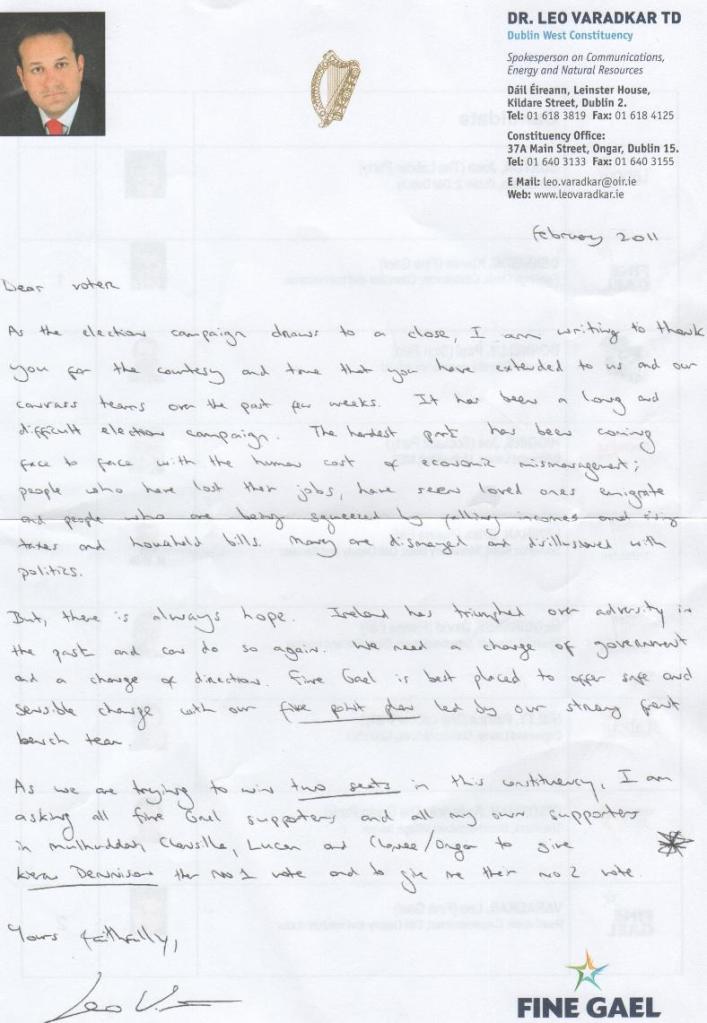 DR. LEO VARADKAR TD
Dublin West Constituency
Spokesperson on Communications,
Energy and Natural Resources
Dáil Éireann, Leinster House,
Kildare Street, Dublin 2.
Tel: 01 618 3819 Fax: 01 618 4125
Constituency Office:
37A Main Street, Ongar, Dublin 15.
Tel: 01 640 3133 Fax: 01 640 3155
E Mail: leo.varadkar@oir.ie
Web: www.leovaradkar.ie
February 2011
Dear voter
As the election campaign draws to a close, I am writing to thank
you for the courtesy and time that you have extended to us and our
canvass teams over the past few weeks. It has been a long and
difficult election campaign. The hardest part has been coming
face to face with the human cost of economic mismanagement;
people who have lost their jobs, have seen loved ones emigrate
and people who are being squeezed by falling incomes and rising
taxes and household bills. Many are dismayed and disillusioned with
politics.
But, there is always hope. Ireland has triumphed over adversity in
the past and can do so again. We need a change of government
and a change of direction. Fine Gael is best placed to offer safe and
sensible change with our five point plan led by our strong front
bench team.
As we are trying to win two seats in this constituency, I am
asking all Fine Gael supporters and all my own supporters
in Mulhuddart, Clonsilla, Lucan and Clonee/Ongar to give
Kieran Dennison their no 1 vote and to give me their no 2 vote.
Yours faithfully,
Leo V
FINE GAEL